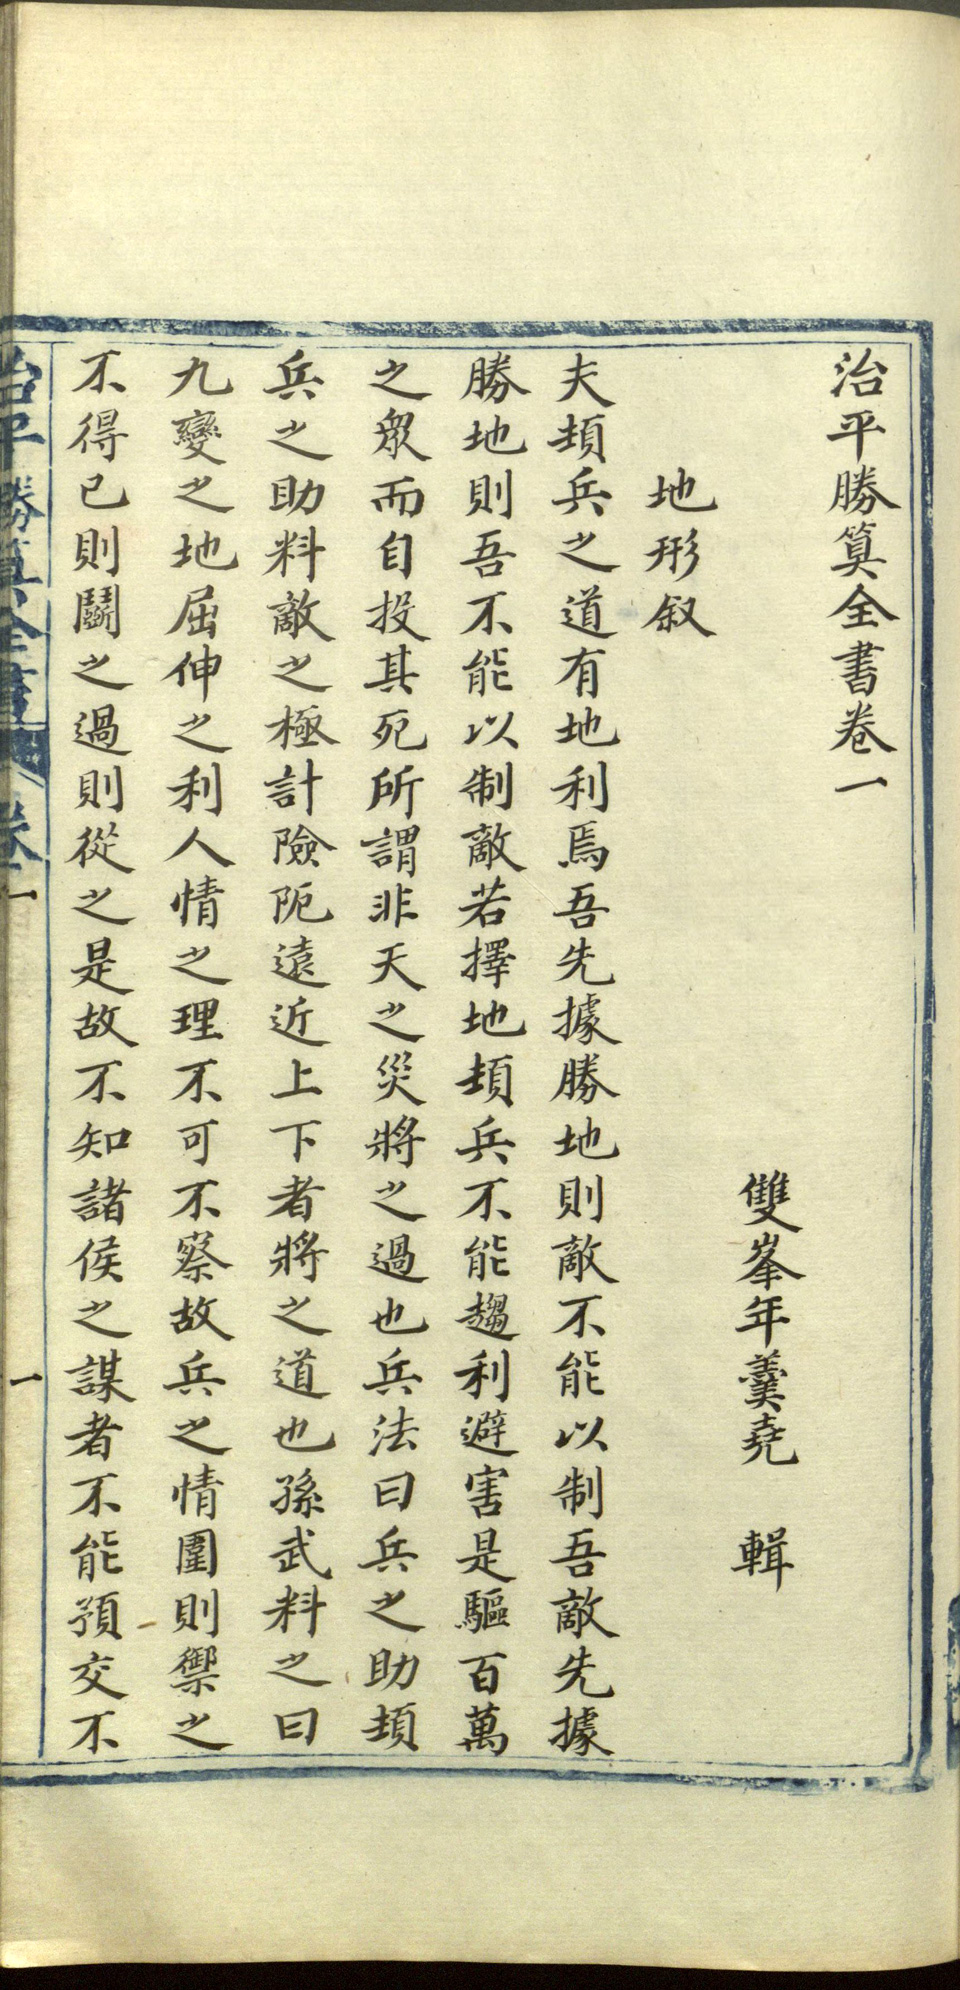 治平勝筭全書卷一
雙峯年羹堯　輯
地形叙
夫頓兵之道有地利焉吾先據勝地則敵不能以制吾敵先據
勝地則吾不能以制敵若擇地頓兵不能趨利避害是驅百萬
之衆而自投其死所謂非天之災將之過也兵法曰兵之助頓
兵之助料敵之極計險阨遠近上下者將之道也孫武料之曰
九變之地屈伸之利人情之理不可不察故兵之情圍則禦之
不得已則鬭之過則從之是故不知諸侯之謀者不能預交不
治平勝筭全書
卷一
一